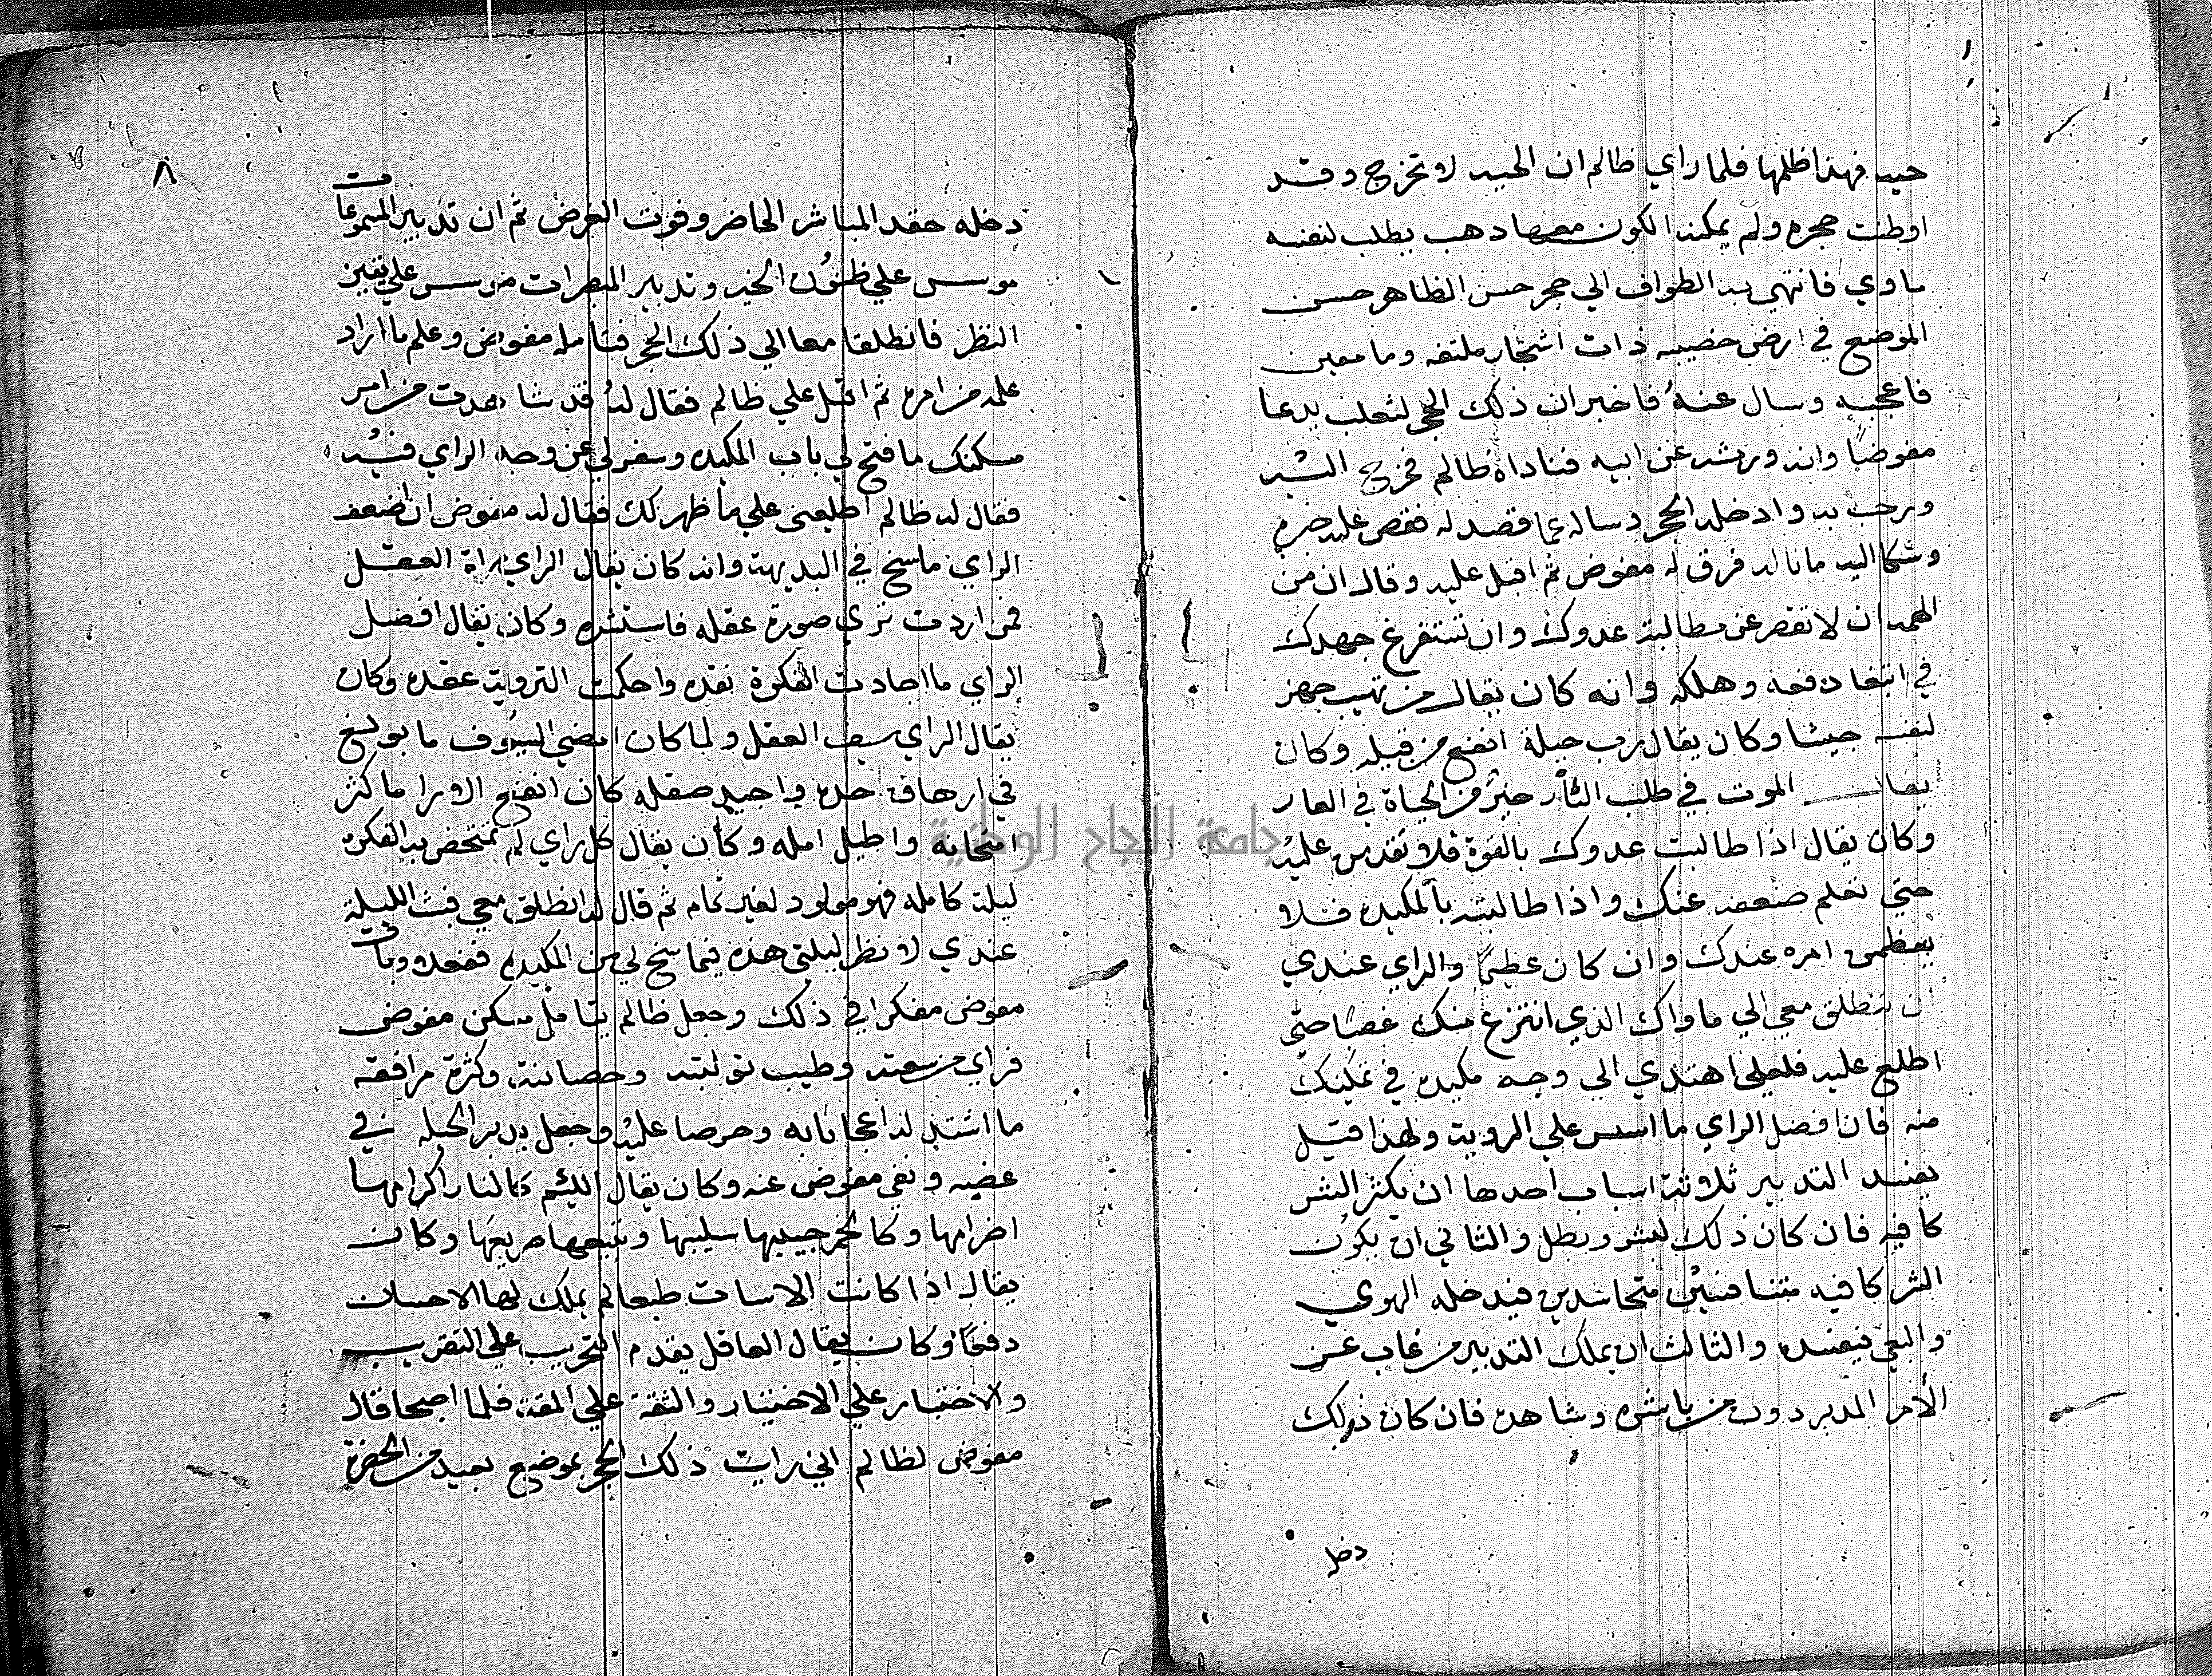 حيه فهذا ظلمها فلما راي ظالم ان الحيه لا تخرج وقد
اوطنت جحره ولم يمكنه الكون معها دهب يطلب لنفسه
ماوي فانتهي به الطواف الي جحر حسن الظاهر حسن
الموضع في ارض خصيبه ذات اشجار ملتفه وما معين
فاعجبه وسال عنه فاخبر ان ذلك الجحر لثعلب يدعا
مفوضا وانه ورثه عن ابيه فناداه ظالم فخرج اليه
ورحب به وادخله الجحر وساله عما قصد له فقص عليه خبره
وشكا اليه ما ناله فرق له مفوض ثم اقبل عليه وقال ان من
الهمه ان لا تقصر عن مطالبة عدوك وان تستفرغ جهدك
في ابتغا دفعه وهلكه وانه كان يقال من تهيب جهز
لنفسه جيشا وكان يقال رب حيلة انفع من قبيله وكان
يقال الموت في طلب الثأر خير من الحياة في العار
وكان يقال اذا طالبت عدوك بالقوة فلا تقدمن عليه
حتي تعلم ضعفه عنك واذا طالبته بالمكيده فلا
يعظمن امره عندك وان كان عظيما والراي عندي
ان تنطلق معي الي ماواك الذي انتزع منك غصبا حتي
اطلع عليه فلعلي اهتدي الي وجه مكيده في تمكينك
منه فان افضل الراي ما اسس علي الروية ولهذا قيل
يفسد التدبير ثلاثة اسباب احدها ان يكثر الشر
كا فيه فان كان ذلك انتشر وبطل والثاني ان يكون
الشركا فيه متنافسين متحاسدين فيدخله الهوي
والبغي فيفسده والثالث ان يملك التدبير من غاب عن
الامر المدبر دون من باشره وشاهده فان كان ذلك
دخله
٨
دخله حقد المباشر الحاضر وفوت الغرض ثم ان تدبير المسموعات
موسس علي ظنون الخبر وتدبير المبصرات موسس علي يقين
النظر فانطلقا معا الي ذلك الجحر فتامله مفوض وعلم ما اراد
علمه من امره ثم اقبل علي ظالم فقال له قد شاهدت من امر
مسكنك ما فتح لي باب المكيده وسفر لي عن وجه الراي فيه
فقال له ظالم اطلعني علي ما ظهر لك فقال له مفوض ان اضعف
الراي ما سنح في البديهة وانه كان يقال الراي مراة العقل
فمن اردت تري صورة عقله فاستشره وكان يقال افضل
الراي ما اجادت الفكرة نقده واحكمت التروية عقده وكان
يقال الراي سيف العقل ولما كان امضي السيوف ما بولغ
في ارهاف حده واجيد صقله كان انفع الارا ما كثر
امتحانه واطيل امله وكان يقال كل راي لم تتمخض به الفكره
ليلة كامله فهو مولود لغير تمام ثم قال له انطلق معي فبت الليلة
عندي لانظر ليلتي هذه فيما سنح لي من المكيده ففعلا وبات
مفوض مفكرا في ذلك وجعل ظالم يتامل مسكن مفوض
فراي من سعته وطيب تربته وحصانته وكثرة مرافقه
ما اشتد له اعجابا به وحرصا عليه وجعل يدبر الحيله في
غصبه ونفي مفوض عنه وكان يقال اللئيم كالنار اكرامها
اضرامها وكالخمر حبيبها سليبها وتبعها صريعها وكان
يقال اذا كانت الاسات طبعا لم يملك لها الاحسان
دفعا وكان يقال العاقل يقدم التجريب علي التقريب
والاختبار علي الاختيار والثقة علي المقه فلما اصبحا قال
مفوض لظالم اني رايت ذلك الجحر بموضع بعيد من الخضرة
جامعة النجاح الوطنية